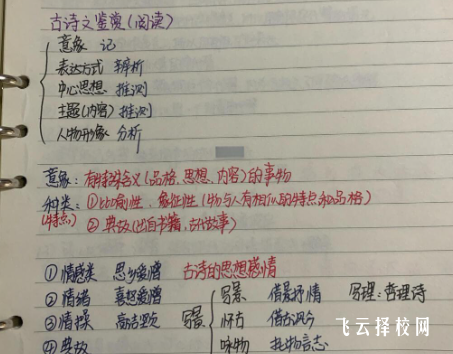 古诗文鉴赏(阅读)
意象 记
表达方式 辨析
中心思想 推测
主题(内容) 推测
人物形象 分析
意象:有特殊含义(品格、思想、内容)的事物
种类:①比喻性、象征性(物与人有相似的特点和品格)
(特点) ②典故(出自书籍、古故事)
①情感类 思乡爱憎 古诗的思想感情
②情绪 喜怒爱憎 写景 借景抒情 写理:哲理诗
③情操 高洁坚贞 写景 怀古 借古讽今
④典故 咏物 托物言志
飞云择校网